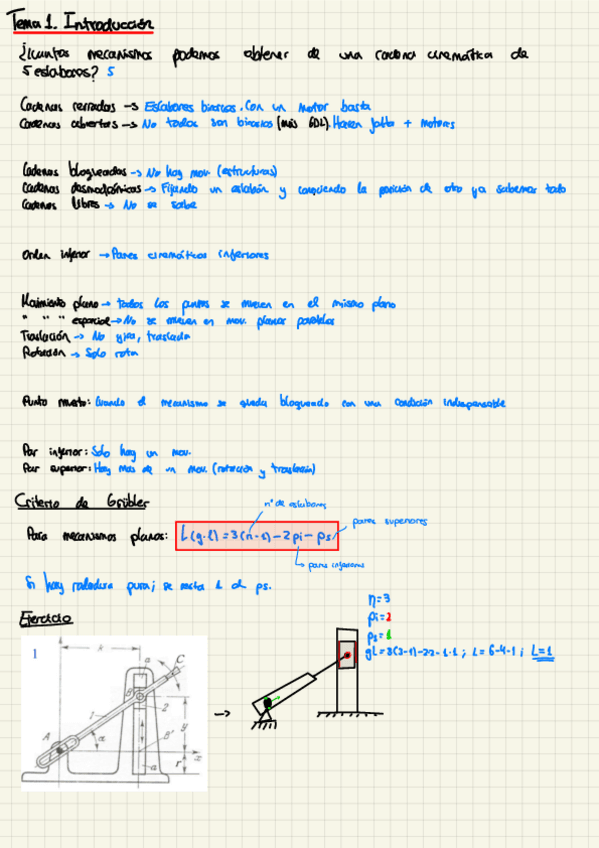 Tema 1. Introducción
¿Cuantos mecanismos podemos obtener de una cadena cinemática de
5 eslabones? 5
Cadenas cerradas → Eslabones binarios. Con un motor basta
Cadenas abiertas → No todos son binarios (más GDL). Hacen falta + motores
Cadenas bloqueadas → No hay mov. (estructuras)
Cadenas desmodrómicas → Fijando un eslabón y conociendo la posición de otro ya sabemos todo
Cadenas libres → No se sabe
Orden inferior → Pares cinemáticos inferiores
Movimiento plano → todos los puntos se mueven en el mismo plano
" " " espacial → No se mueven en mov. planos paralelos
Traslación → No gira, traslada
Rotación → Solo rota
Punto muerto: Cuando el mecanismo se queda bloqueado con una condición indispensable
Par inferior: Solo hay un mov.
Par superior: Hay mas de un mov. (rotación y traslación)
Criterio de Grübler
nº de eslabones
Para mecanismos planos: L(g.l) = 3(n-1) - 2pi - ps
pares superiores
pares inferiores
Si hay rodadura pura; se resta 1 al ps.
Ejercicio
n=3
pi=2
ps=1
gL = 3(3-1) - 2·2 - 1·1 ; L = 6-4-1 ; L=1
1
x
a
C
B
2
1
y
A
α
B'
x
a
r